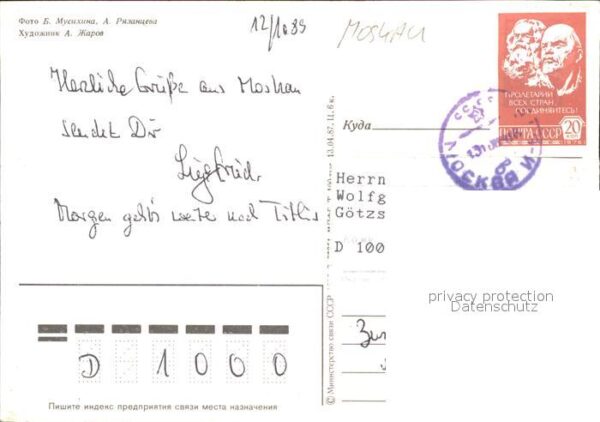 Фото Б. Мусихина, А. Рязанцева
Художник А. Жаров
12/10 89
MOSKAU
Herzliche Grüße aus Moskau
sendet Dir
Siegfried.
Morgen geht's weiter nach Tiflis
ПРОЛЕТАРИИ
ВСЕХ СТРАН,
СОЕДИНЯЙТЕСЬ!
ПОЧТА СССР 20
1976
СССР
МОСКВА
Куда
Herrn
Wolfg
Götzs
D 100
privacy protection
Datenschutz
© Министерство связи СССР
13.04.87
D 1000
Пишите индекс предприятия связи места назначения